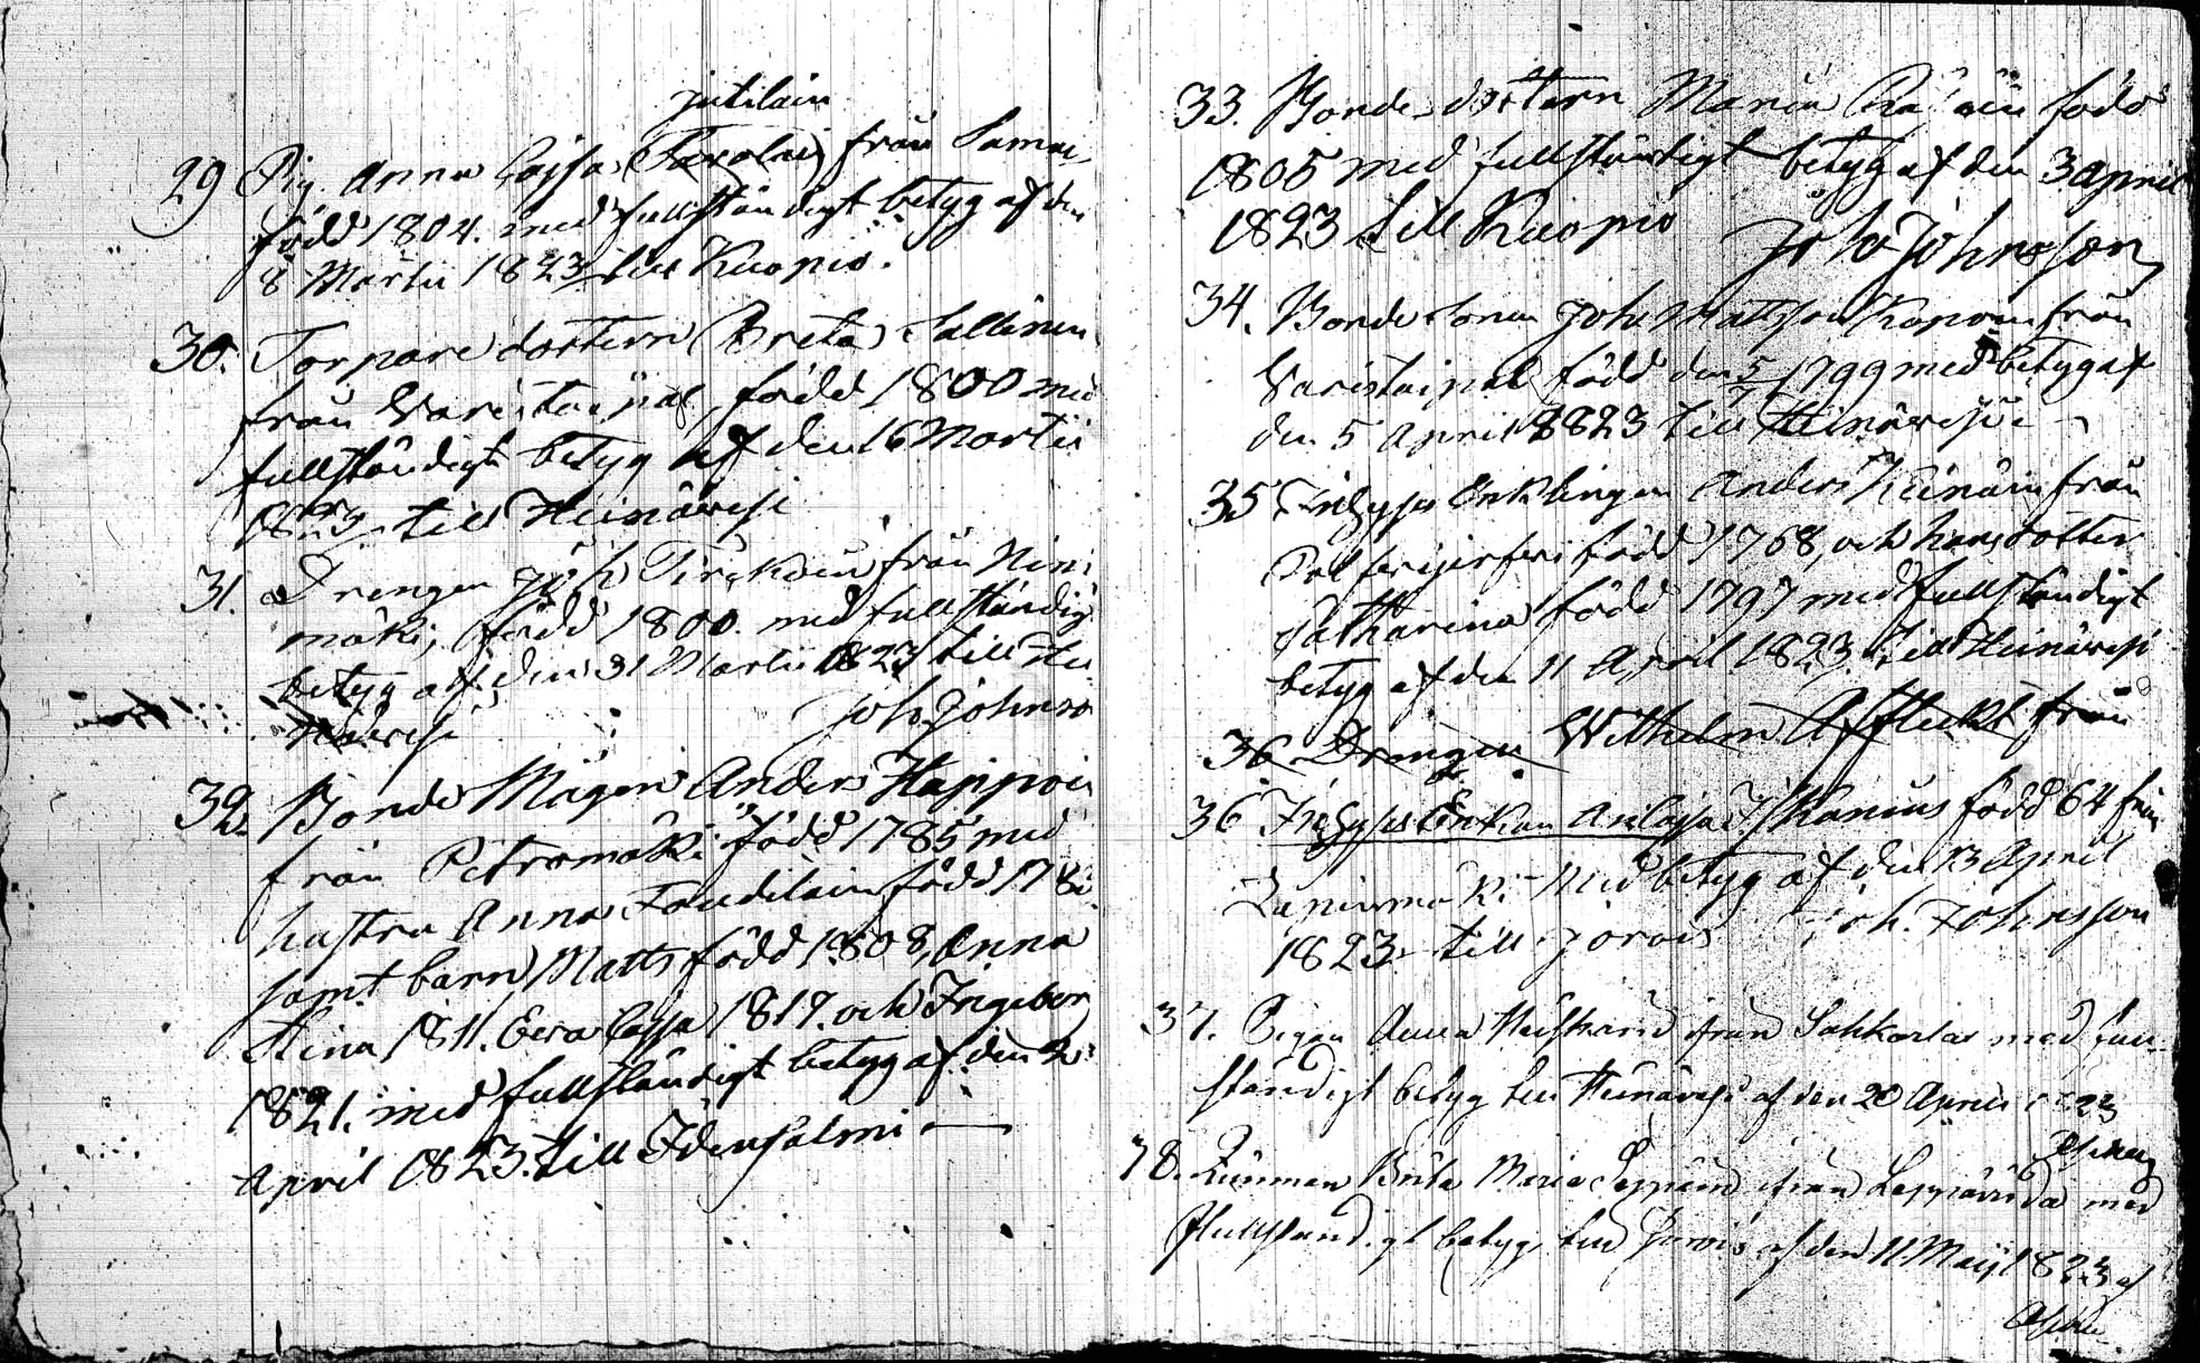 jutilain
29 Pig. Anna Cajsa från
född 1804. med fullständigt betyg af den
8 Martii 1823 till Kuopio.
30. Torpare dottern Greta Sallinen
från Varistaipal, född 1800 med
fullständigt betyg af den 16 Martii
1823 till Heinävesi
31. Drengen Joh Tirkkoin från Nini
mäki, född 1800. med fullständig
betyg af den 31 Martii 1823 till Hei
nävesi Joh Johnso
32. Bonde Mågen Anders Happoin
från Petromäki född 1785 med
hustru Anna Taudilain född 178
samt barn Matts född 1808, Anna
Stina 1811. Eva Cajsa 1817. och Ingebor
1821. med fullständigt betyg af den 2
April 1823. till Idensalmi
33. Bonde dottern Maria född
1805 med fullständigt betyg af den 3 april
1823 till Kuopio
Joh Johnsson
34. Bonde Sonen Joh Mattsson Koponen från
Varistaipal född den 5/7 1799 med betyg af
den 5 April 1823 till Heinävesi
35 Inhyses Enklingen Anders Keinäin från
född 1768, och hans dotter
Catharina född 1797 med fullständigt
betyg af den 11 April 1823. till Heinävesi
36 Drengen Wilhelm Affleckt från
36 Inhyses Enkan An Cajsa Ikanius född 64 från
Lapinmäki Med betyg af den 13 April
1823 till Jorois Joh. Johnsson
37. Pigan Anna från Sahkarlax med full-
ständigt betyg till Heinävesi af den 20 April 1823
38. Qvinman Brita Maria Leppäin från Leppävirda med
fullständigt betyg till Jorois af den 11 Maij 1823 af